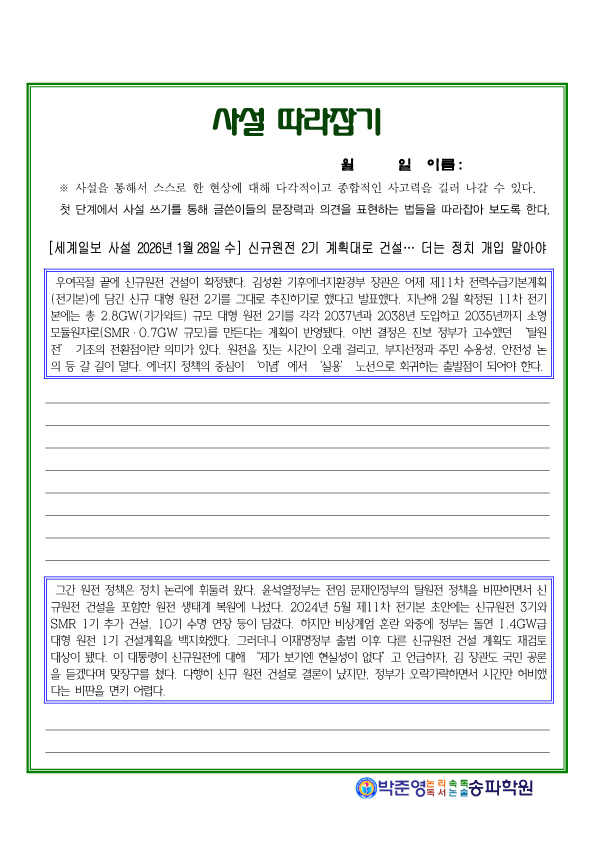 사설 따라잡기
월 일 이름:
※ 사설을 통해서 스스로 한 현상에 대해 다각적이고 종합적인 사고력을 길러 나갈 수 있다.
첫 단계에서 사설 쓰기를 통해 글쓴이들의 문장력과 의견을 표현하는 법들을 따라잡아 보도록 한다.
[세계일보 사설 2026년 1월 28일 수] 신규원전 2기 계획대로 건설… 더는 정치 개입 말아야
우여곡절 끝에 신규원전 건설이 확정됐다. 김성환 기후에너지환경부 장관은 어제 제11차 전력수급기본계획
(전기본)에 담긴 신규 대형 원전 2기를 그대로 추진하기로 했다고 발표했다. 지난해 2월 확정된 11차 전기
본에는 총 2.8GW(기가와트) 규모 대형 원전 2기를 각각 2037년과 2038년 도입하고 2035년까지 소형
모듈원자로(SMR·0.7GW 규모)를 만든다는 계획이 반영됐다. 이번 결정은 진보 정부가 고수했던 ‘탈원
전’ 기조의 전환점이란 의미가 있다. 원전을 짓는 시간이 오래 걸리고, 부지선정과 주민 수용성, 안전성 논
의 등 갈 길이 멀다. 에너지 정책의 중심이 ‘이념’에서 ‘실용’ 노선으로 회귀하는 출발점이 되어야 한다.
그간 원전 정책은 정치 논리에 휘둘려 왔다. 윤석열정부는 전임 문재인정부의 탈원전 정책을 비판하면서 신
규원전 건설을 포함한 원전 생태계 복원에 나섰다. 2024년 5월 제11차 전기본 초안에는 신규원전 3기와
SMR 1기 추가 건설, 10기 수명 연장 등이 담겼다. 하지만 비상계엄 혼란 와중에 정부는 돌연 1.4GW급
대형 원전 1기 건설계획을 백지화했다. 그러더니 이재명정부 출범 이후 다른 신규원전 건설 계획도 재검토
대상이 됐다. 이 대통령이 신규원전에 대해 “제가 보기엔 현실성이 없다”고 언급하자, 김 장관도 국민 공론
을 듣겠다며 맞장구를 쳤다. 다행히 신규 원전 건설로 결론이 났지만, 정부가 오락가락하면서 시간만 허비했
다는 비판을 면키 어렵다.
박준영논리속독독서논술송파학원